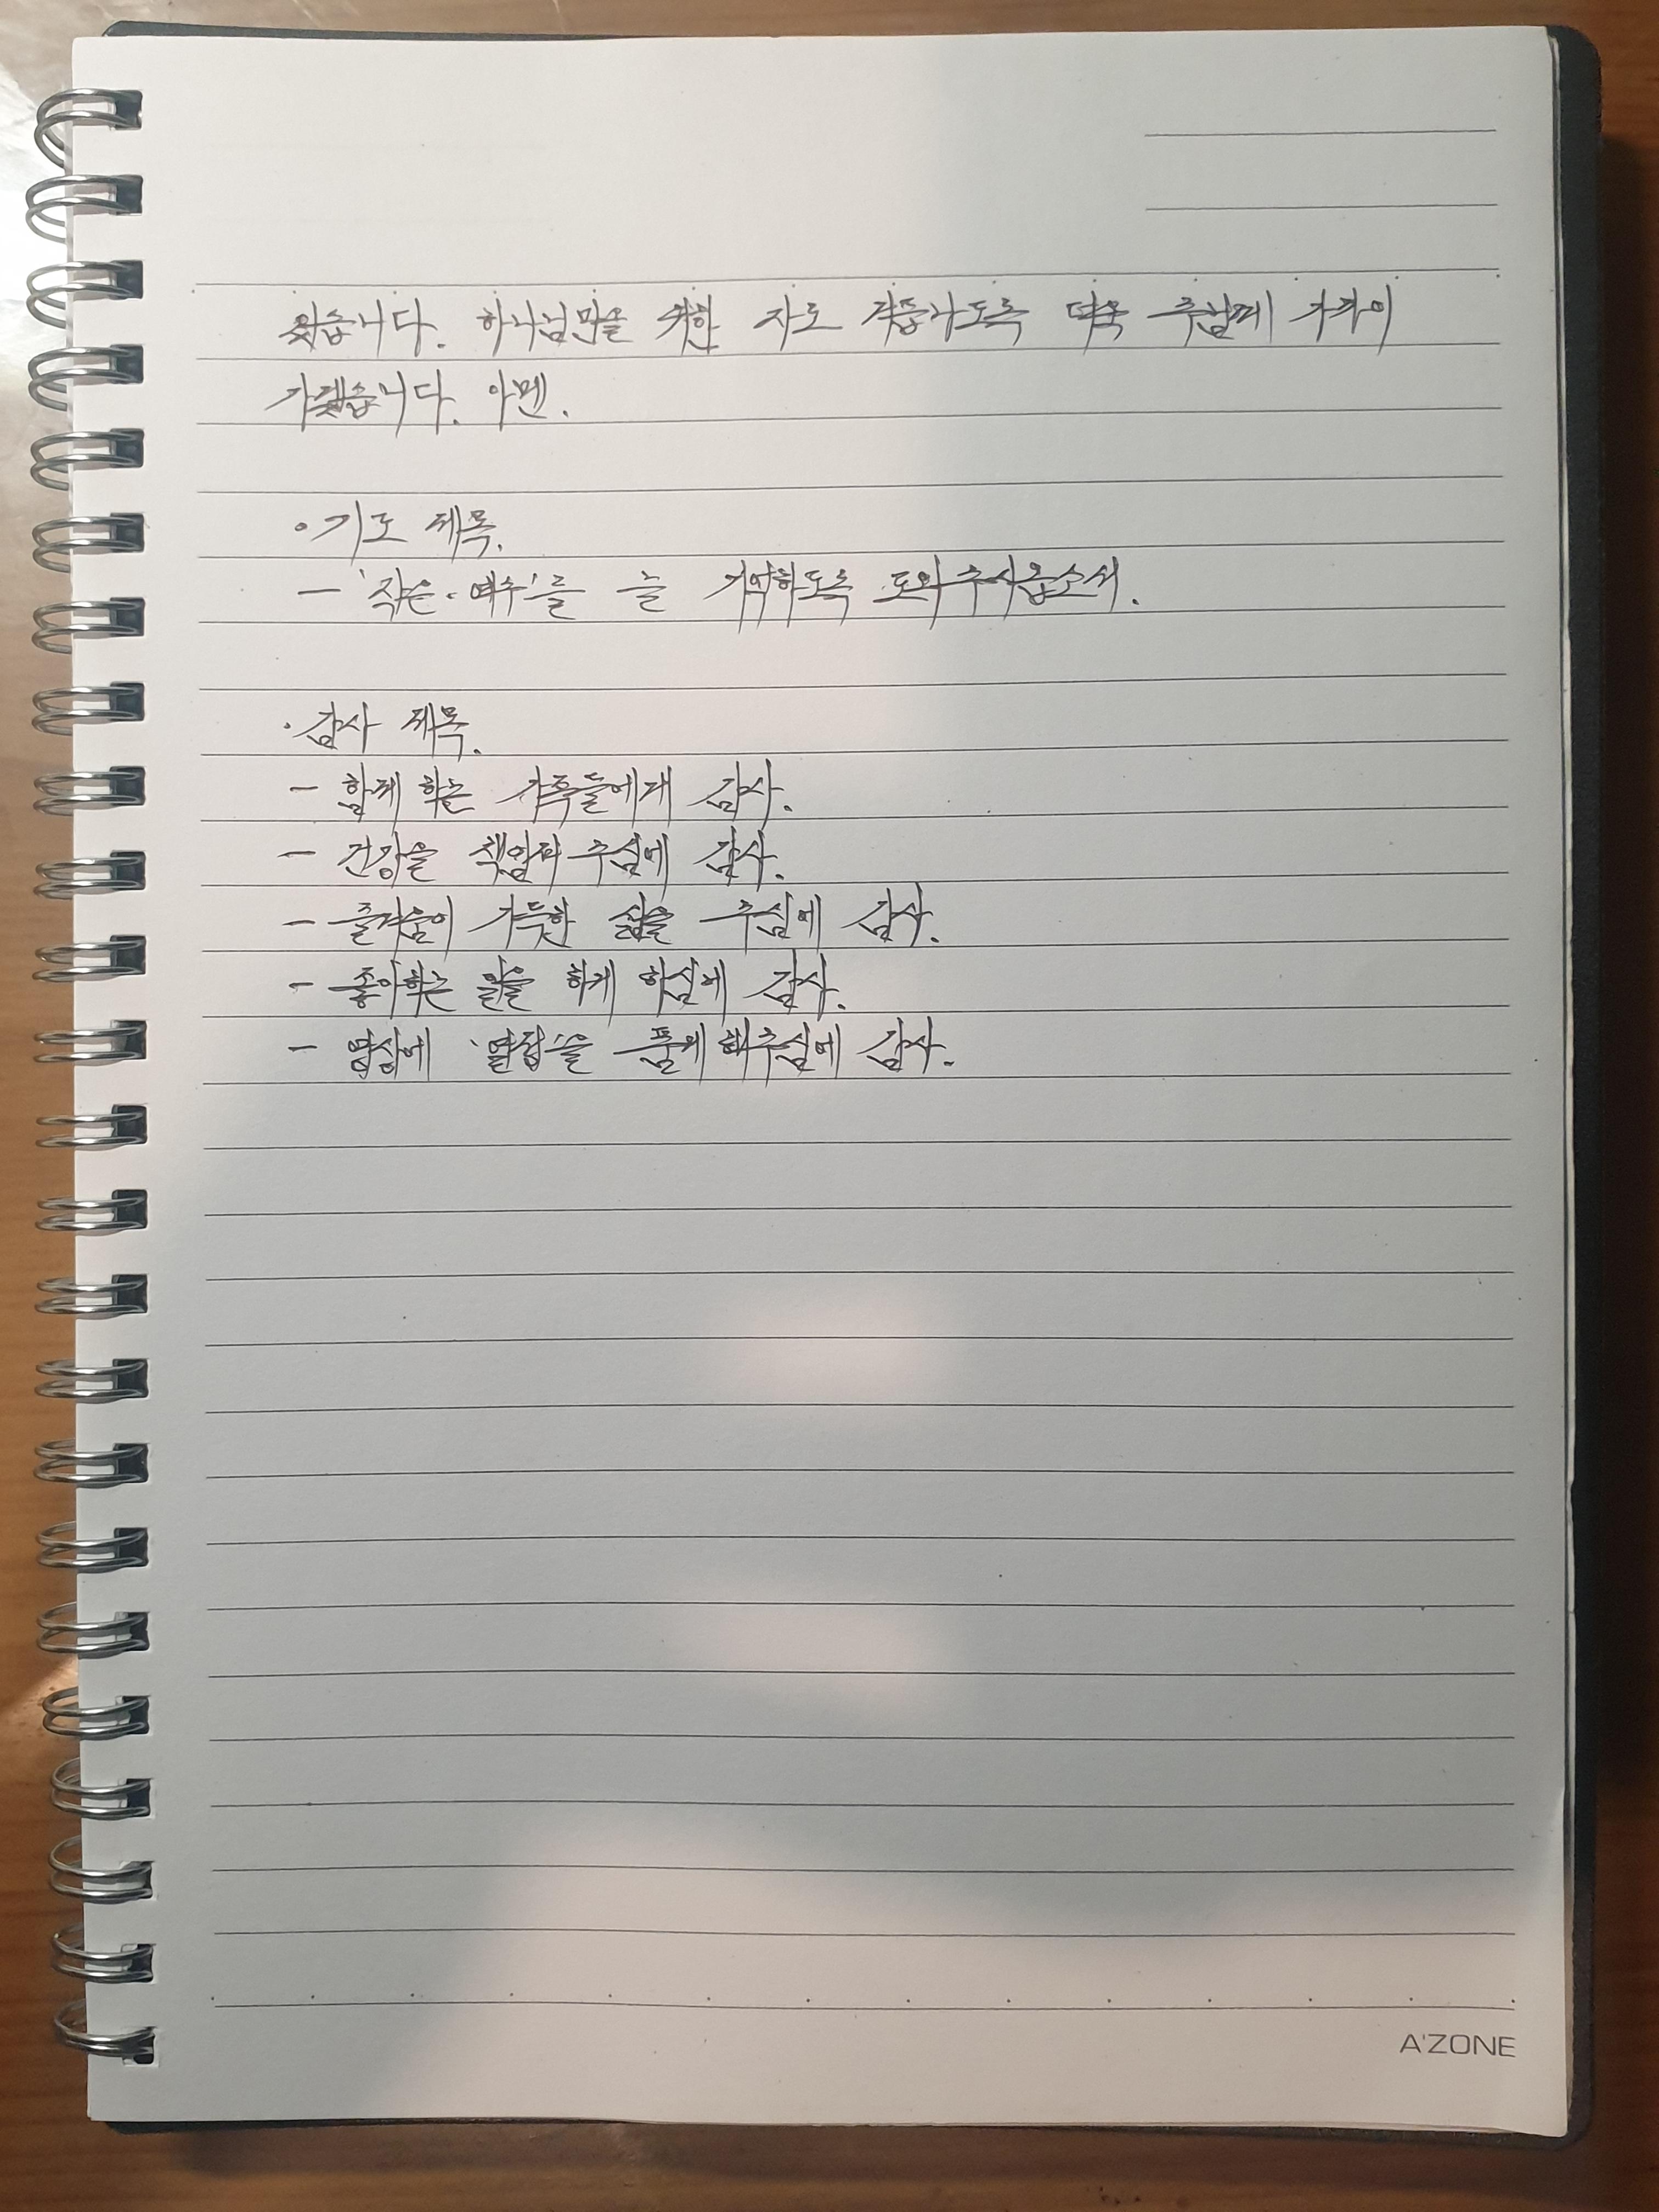 있습니다. 하나님만을 위한 자로 거듭나도록 더욱 주님께 가까이
가겠습니다. 아멘.
∘ 기도 제목.
- '작은 예수'를 늘 기억하도록 도와주시옵소서.
· 감사 제목.
- 함께 하는 가족들에게 감사.
- 건강을 책임져 주심에 감사.
- 즐거움이 가득한 삶을 주심에 감사.
- 좋아하는 일을 하게 하심에 감사.
- 명상에 을 품게 해주심에 감사.
A'ZONE